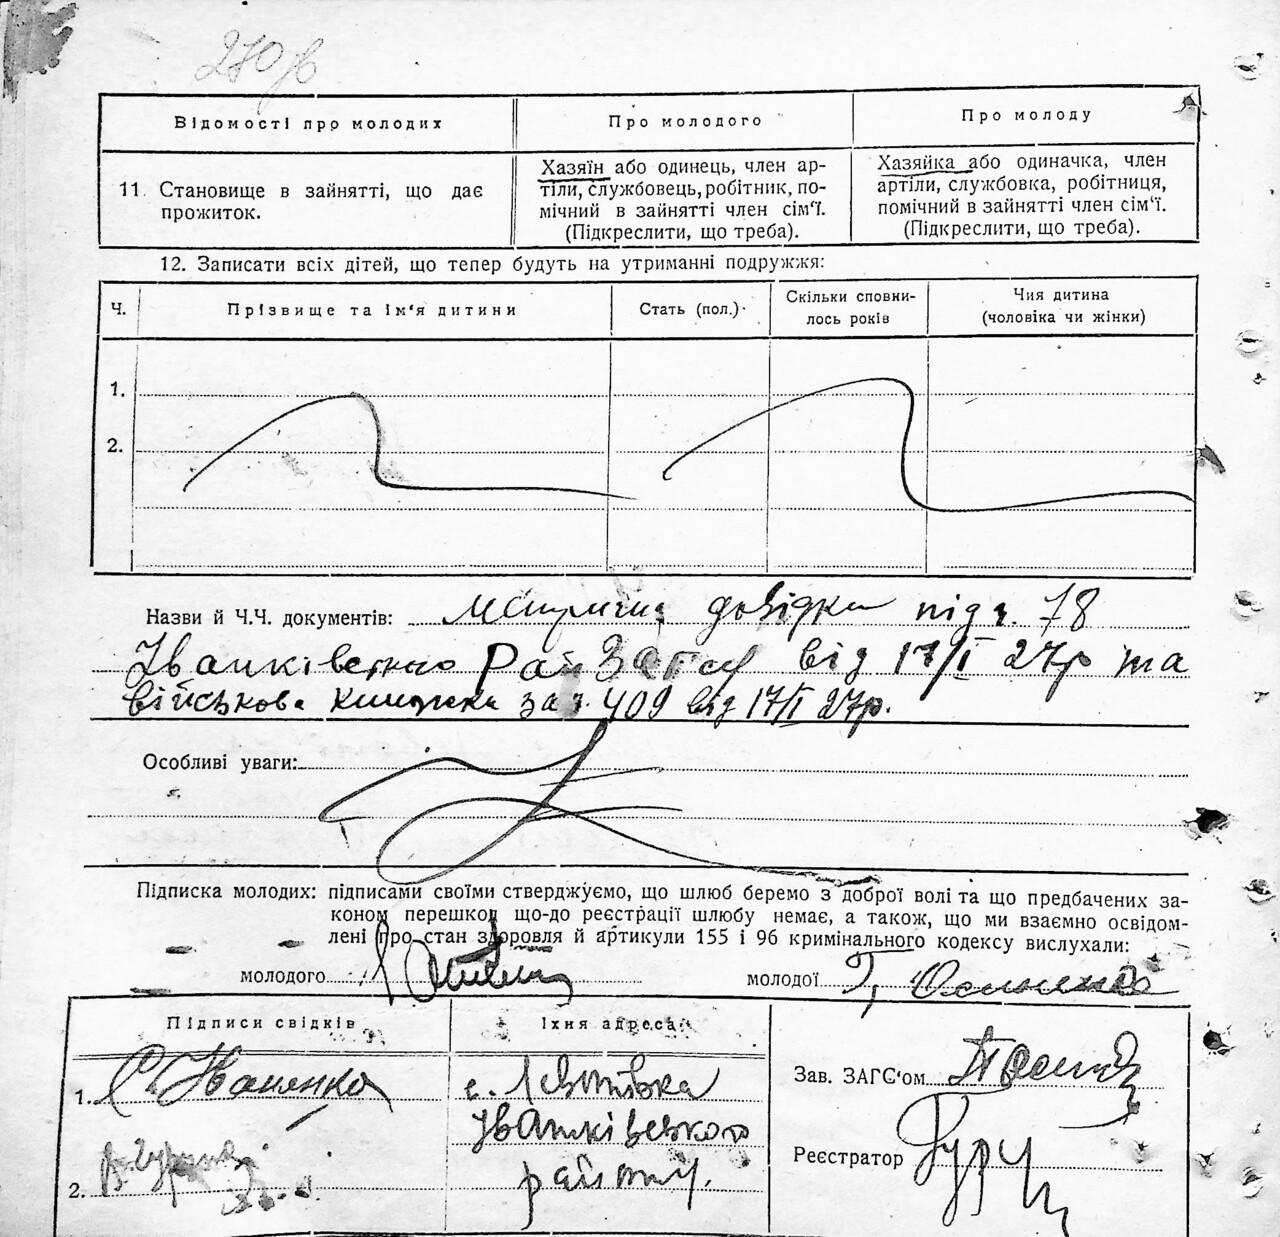 270 зв
Відомості про молодих
Про молодого
Про молоду
11. Становище в зайнятті, що дає
прожиток.
Хазяїн або одинець, член ар-
тіли, службовець, робітник, по-
мічний в зайнятті член сім'ї.
(Підкреслити, що треба).
Хазяйка або одиначка, член
артіли, службовка, робітниця,
помічний в зайнятті член сім'ї.
(Підкреслити, що треба).
12. Записати всіх дітей, що тепер будуть на утриманні подружжя:
Ч.
Прізвище та ім'я дитини
Стать (пол.)
Скільки сповни-
лось років
Чия дитина
(чоловіка чи жінки)
1.
2.
Назви й Ч.Ч. документів: Метрична довідка під ч. 78
Іванківського РайЗагсу від 17/I 27р та
військова книжка за ч. 409 від 17/I 27р.
Особливі уваги:
Підписка молодих: підписами своїми стверджуємо, що шлюб беремо з доброї волі та що предбачених за-
коном перешкод що-до реєстрації шлюбу немає, а також, що ми взаємно освідом-
лені про стан здоровля й артикули 155 і 96 кримінального кодексу вислухали:
молодого
молодої Г.
Підписи свідків
Їхня адреса:
1. С. Іваненко
с.
Іванківського
району.
2.
Зав. ЗАГС'ом
Реєстратор